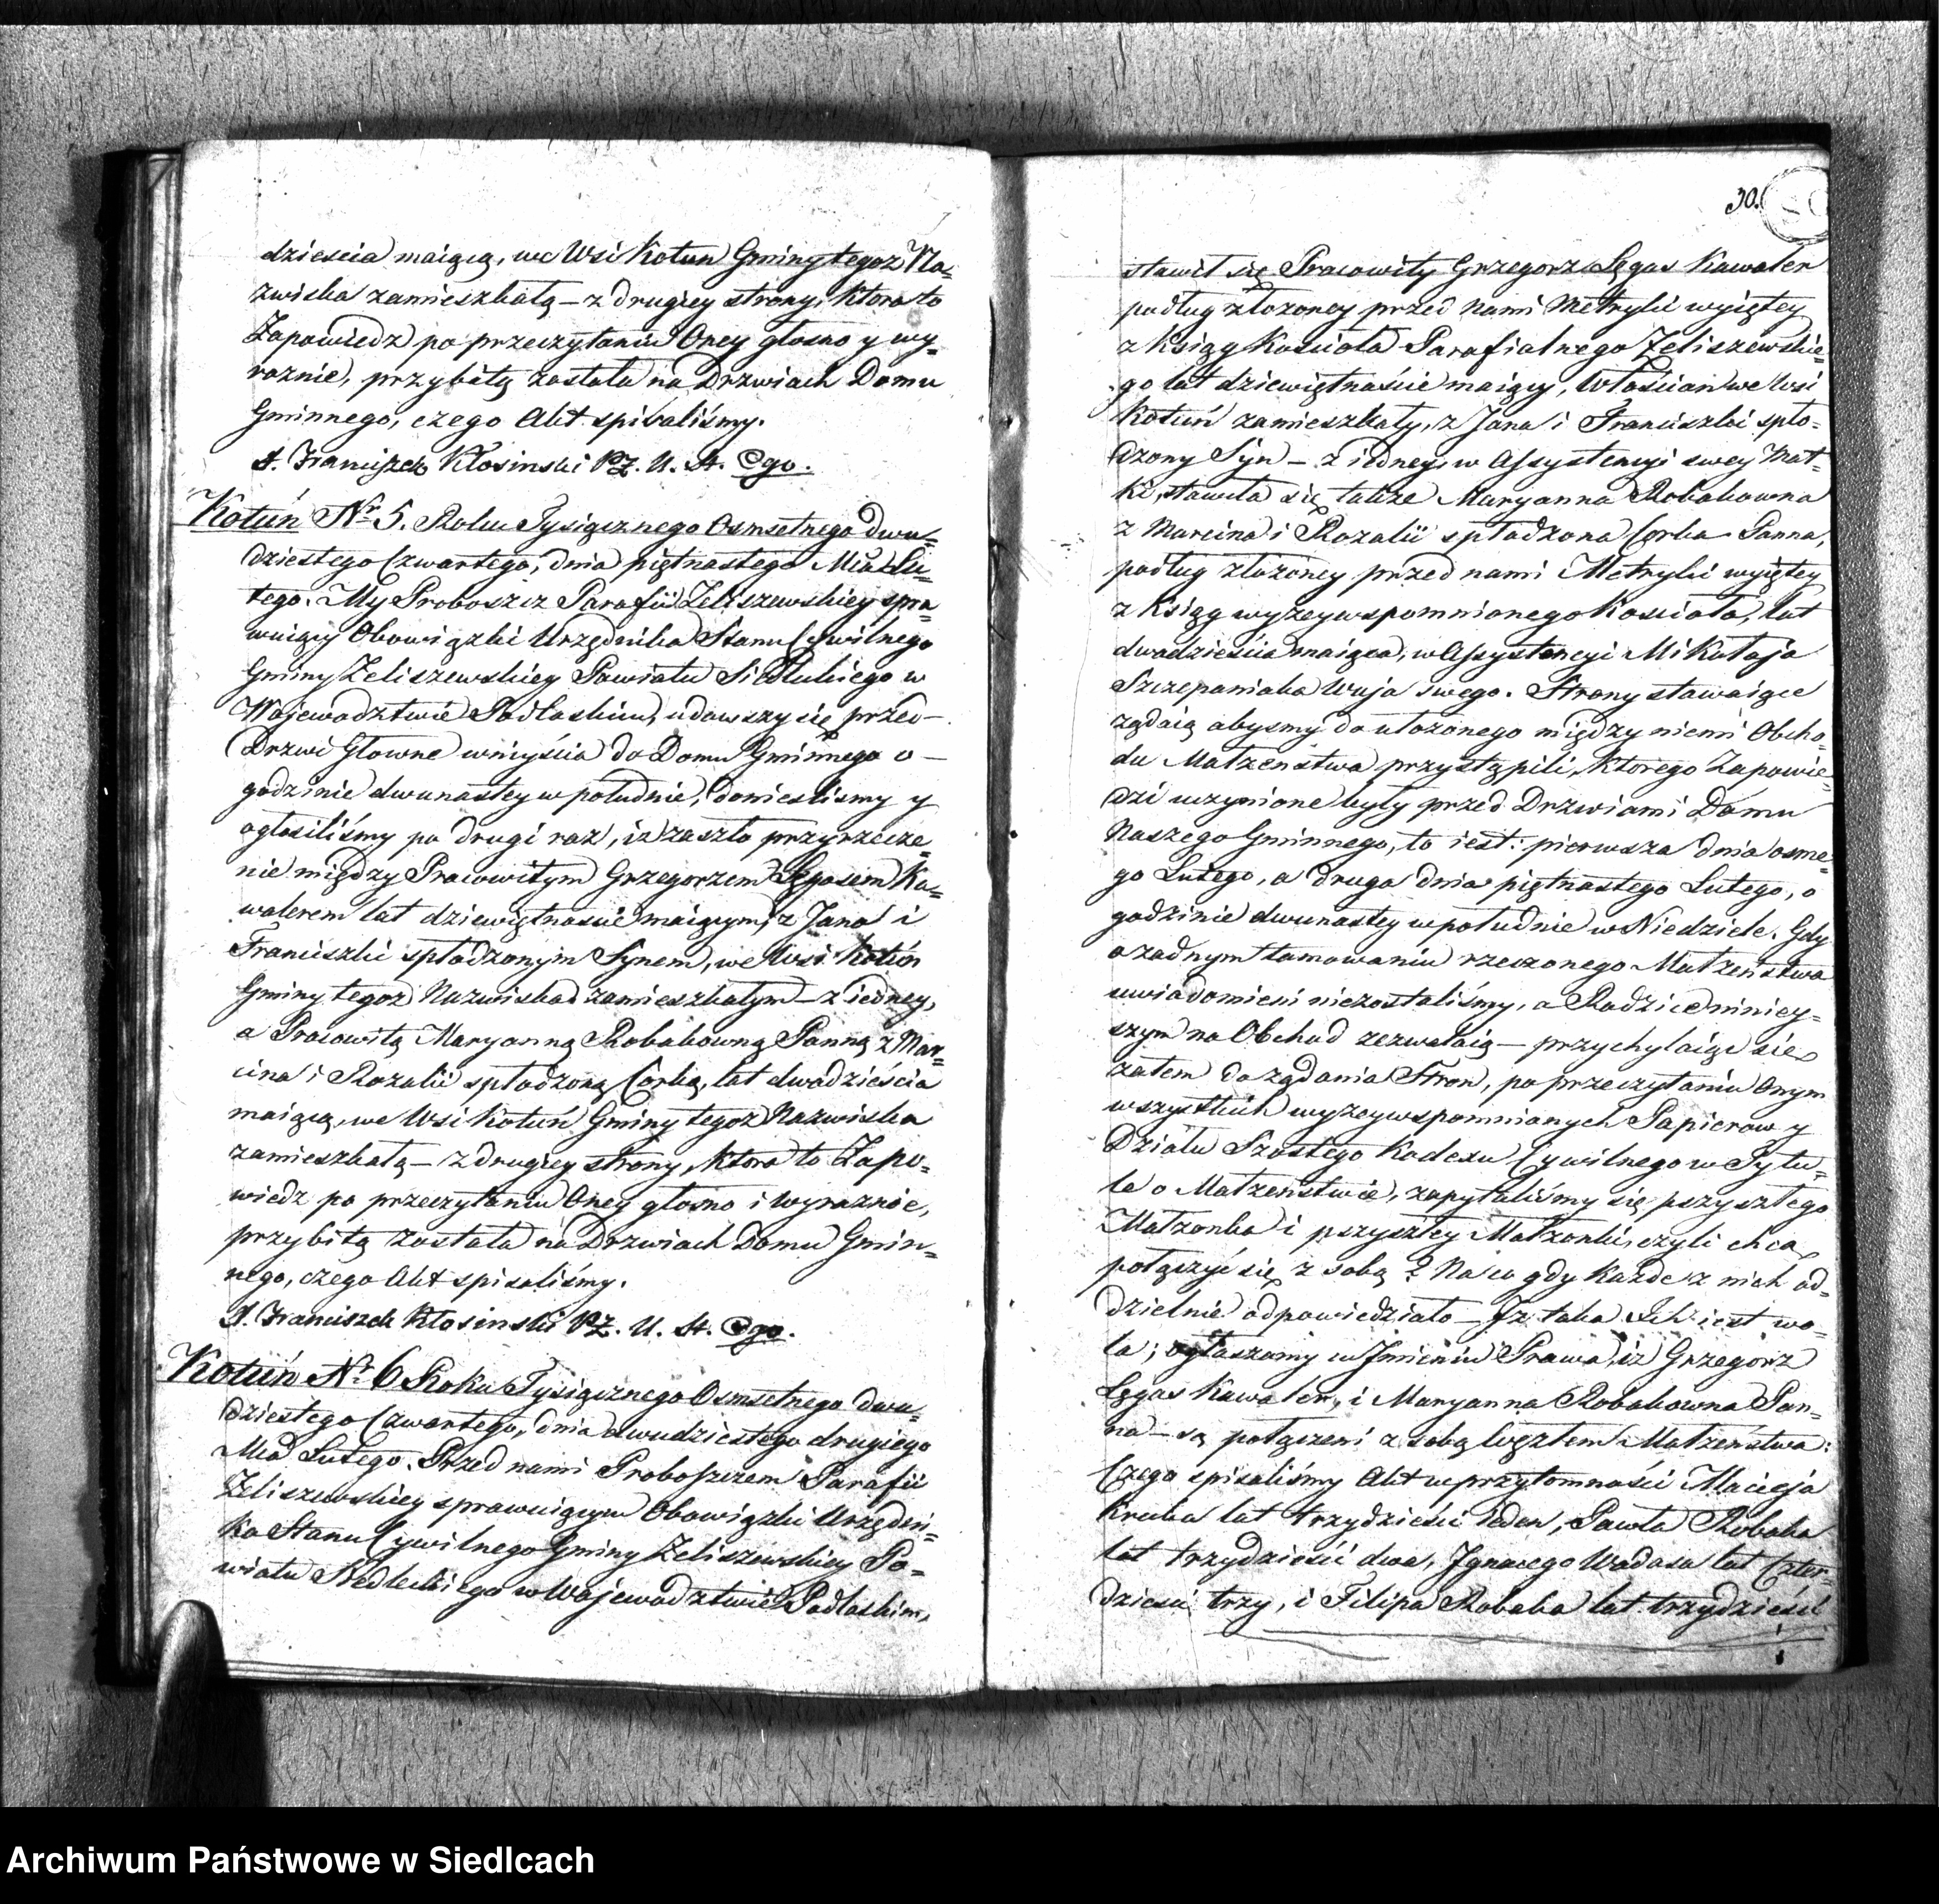 dziescia maiącą, we Wsi Kotun Gminy tegoz Na=
zwiska zamieszkałą – z drugiey strony, ktora to
Zapowiedz po przeczytaniu Oney głosno y wy=
raznie, przybitą została na Drzwiach Domu
Gminnego, czego Akt spisaliśmy.
X. Franciszek Kłosinski PZ. U. St. Cgo.
Kotuń Nr 5. Roku Tysiącznego Osmsetnego dwu=
dziestego Czwartego, dnia piętnastego Mca Lu=
tego. My Proboszcz Parafii Zeliszewskiey spra=
wuiący Obowiązki Urzędnika Stanu Cywilnego
Gminy Zeliszewskiey Powiatu Siedleckiego w
Wojewodztwie Podlaskim, udawszy się przed –
Drzwi Głowne wniyścia do Domu Gminnego o –
godzinie dwunastey w południe, doniesliśmy y
ogłosiliśmy po drugi raz, iz zaszło przyrzecze=
nie między Pracowitym Grzegorzem Lęgasem Ka=
walerem lat dziewiętnaście maiącym, z Jana i
Franciszki spłodzonym Synem, we Wsi Kotuń
Gminy tegoz Nazwiska zamieszkałym – z iedney,
a Pracowitą Maryanną Robakowną Panną z Mar=
cina i Rozalii spłodzoną Corką, lat dwadzieścia
maiącą, we Wsi Kotuń Gminy tegoz Nazwiska
zamieszkałą – z drugiey strony, ktora to Zapo=
wiedz po przeczytaniu Oney głosno i wyraznie,
przybitą została na Drzwiach Domu Gmin=
nego, czego Akt spisaliśmy.
X. Franciszek Kłosinski PZ. U. St. Cgo.
Kotuń Nr 6 Roku Tysiącznego Osmsetnego dwu=
dziestego Czwartego, dnia dwudziestego drugiego
Mca Lutego. Przed nami Proboszczem Parafii
Zeliszewskiey sprawuiącym Obowiązki Urzędni=
ka Stanu Cywilnego Gminy Zeliszewskiey Po=
wiatu Siedleckiego w Wojewodztwie Podlaskim,
30.
stawił się Pracowity Grzegorz Lęgas Kawaler
podług złozoney przed nami Metryki wyiętey
z Ksiąg Kościoła Parafialnego Zeliszewskie=
go lat dziewiętnaście maiący, Włościan we Wsi
Kotuń zamieszkały, z Jana i Franciszki spło=
dzony Syn – z iedney, w Assystencyi swey Mat=
ki, stawiła się takze Maryanna Robakowna
z Marcina i Rozalii spłodzona Corka Panna,
podług złozoney przed nami Metryki wyiętey
z Ksiąg wyzeywspomnionego Kościoła, lat
dwadzieścia maiąca, w Assystencyi Mikołaja
Szczepaniaka Wuja swego. Strony stawaiące
ządaią abysmy do ułozonego między niemi Obcho=
du Małzeństwa przystąpili, ktorego Zapowie=
dzi uczynione były przed Drzwiami Domu
Naszego Gminnego, to iest: pierwsza dnia osme=
go Lutego, a druga dnia piętnastego Lutego, o
godzinie dwunastey w południe w Niedziele. Gdy
o zadnym tamowaniu rzeczonego Małzeństwa
uwiadomieni niezostaliśmy, a Rodzice niniey=
szym na Obchod zezwalaią – przychylaiąc się
zatem do ządania Stron, po przeczytaniu Onym
wszystkich wyzeywspomnianych Papierow y
Działu Szostego Kodexu Cywilnego w Tytu=
le o Małzeństwie, zapytaliśmy się pszyszłego
Małzonka i pszyszłey Małzonki, czyli chcą
połączyć się z sobą? Na co gdy kazde z nich od=
dzielnie odpowiedziało – Iz taka Ich iest wo=
la; ogłaszamy w Jmieniu Prawa, iz Grzegorz
Lęgas Kawaler, i Maryanna Robakowna Pan=
na – są połączeni z sobą Węzłem Małzeństwa:
Czego spisaliśmy Akt w przytomności Macieja
Kruka lat trzydzieści ieden, Pawła Robaka
lat trzydzieści dwa, Jgnacego Wadasa lat Czter=
dzieści trzy, i Filipa Robaka lat trzydzieści
Archiwum Państwowe w Siedlcach